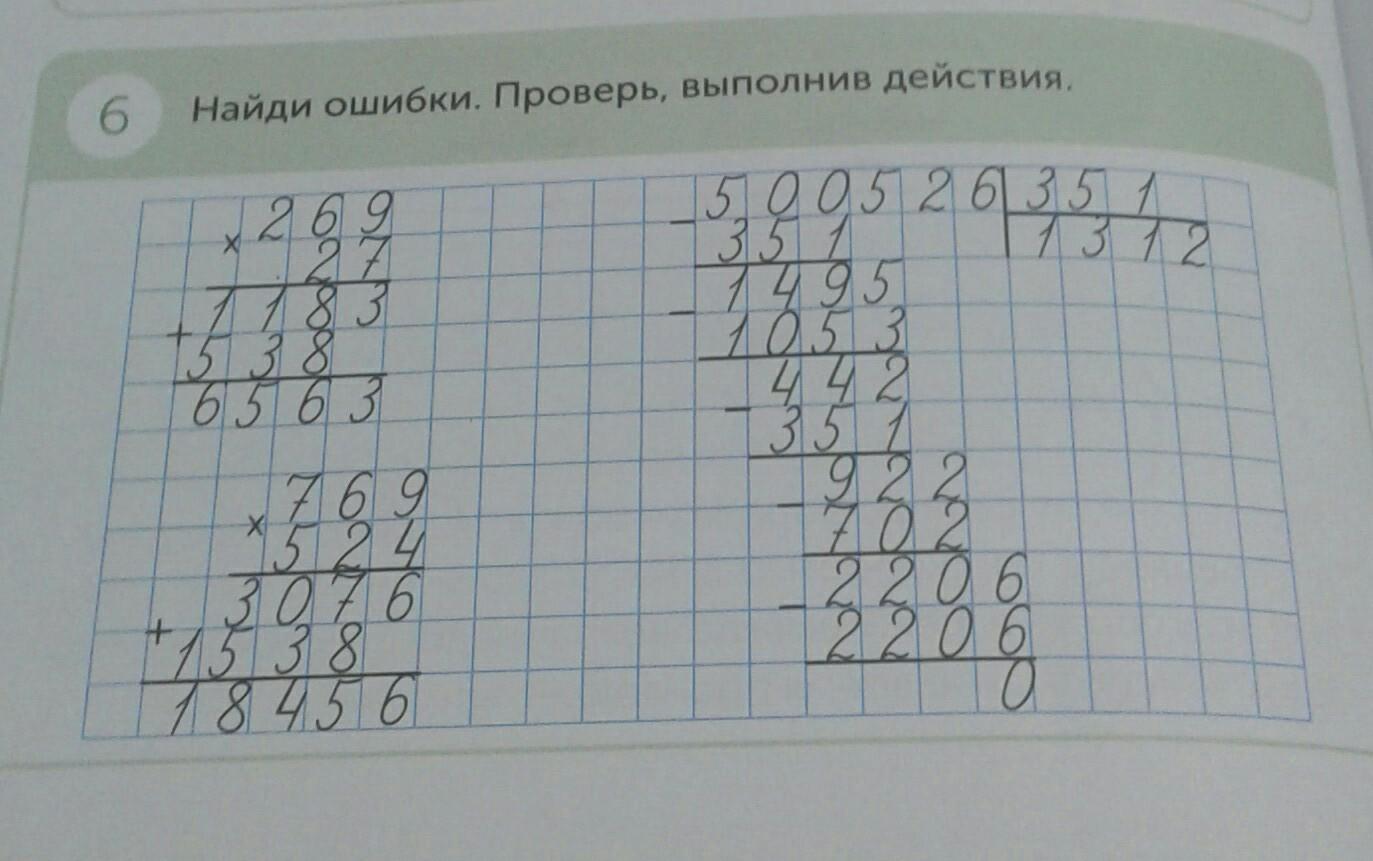 6
Найди ошибки. Проверь, выполнив действия.
× 269
27
1183
+ 538
6563
× 769
524
3076
+ 1538
18456
- 500526 351
351 1312
1495
- 1053
442
- 351
922
- 702
2206
- 2206
0